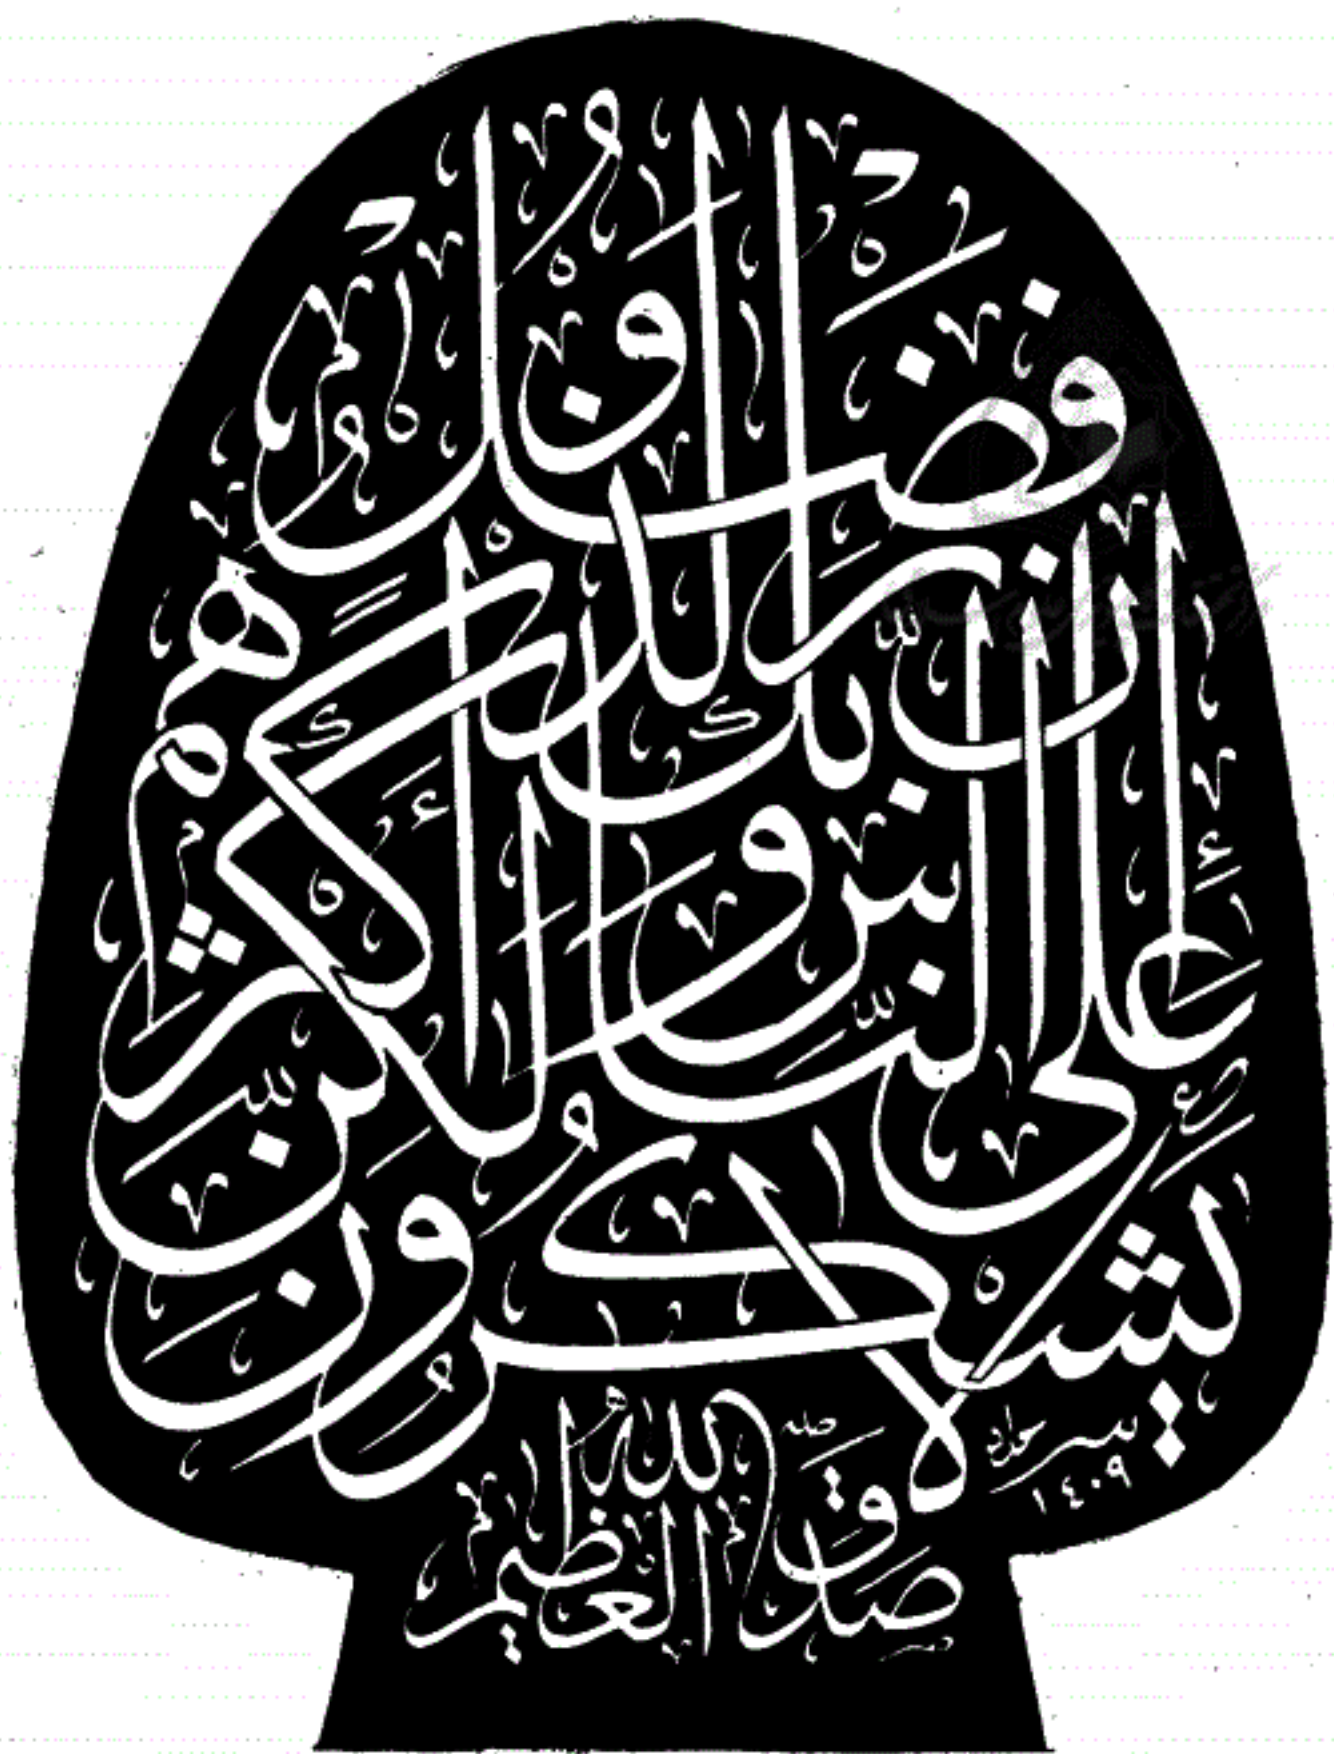 وَإِنَّ رَبَّكَ لَذُو فَضْلٍ
عَلَى النَّاسِ وَلَٰكِنَّ أَكْثَرَهُمْ
لَا يَشْكُرُونَ
صدق الله العظيم
١٤٠٩